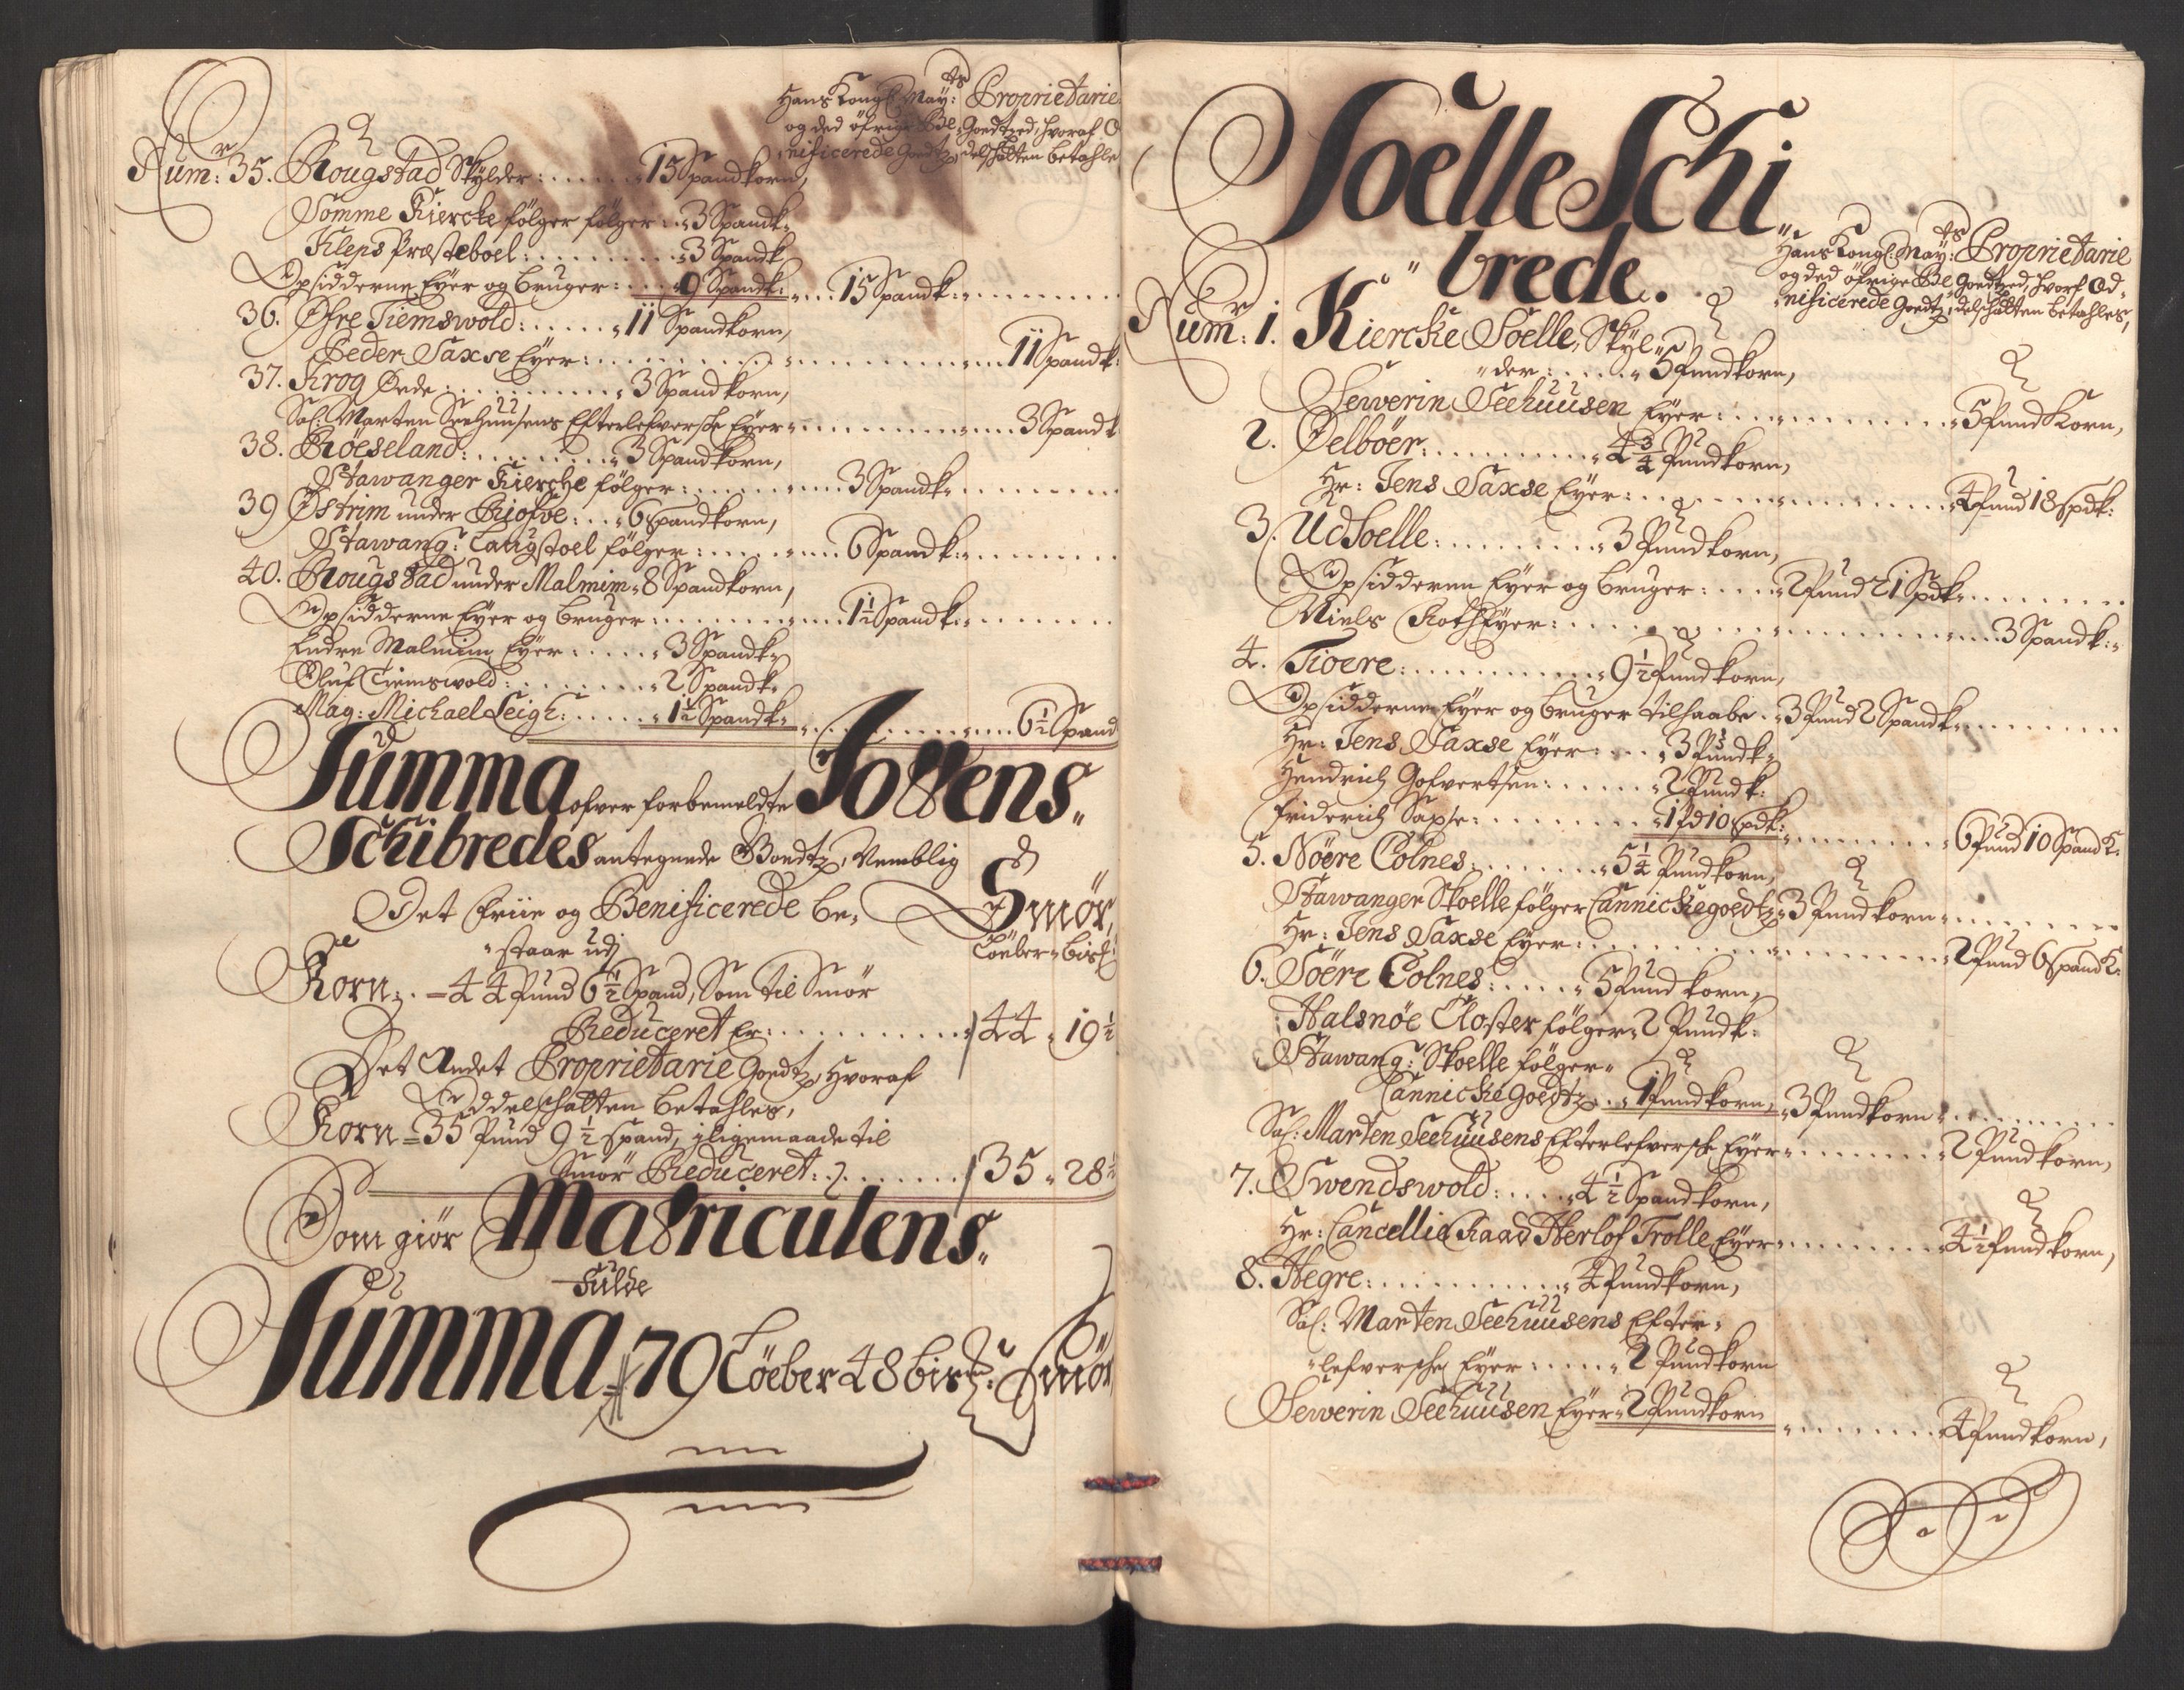 Hans Kongl: May:ts Proprietarie
og det öfrige Be- Goedtzed, hvoraf O
nificerede Goedtz, delschatten betahle
Num: 35. Rougstad Skylder: 15 Spandkorn,
Somme Kiercke følger følger: 3 Spandk.
Kleps Præsteboel: 3 Spandk
Opsidderne Eyer og bruger: 9 Spandk: 15 Spandk:
36. Øfre Tiemswold: 11 Spandkorn,
Peder Saxse Eyer: 11 Spandk:
37. Krog Øede: 3 Spandkorn,
Sal: Marten Seehuusens Efterlefversche Eyer 3 Spandk
38. Röeseland: 3 Spandkorn,
Stawanger Kiercke følger: 3 Spandk.
39 Østrim under Riofve: 6 Spandkorn,
Stawang: Laugstoel følger: 6 Spandk:
40. Rougstad under Malmim 8 Spandkorn,
Opsidderne Eyer og bruger: 1½ Spandk:
Endre Malmim Eyer: 3 Spandk
Oluf Tiemswold: 2 Spandk
Mag: Michael Leigh: 1½ Spandk 6½ Spand
Summa ofver forbemeldte Jottens
Schibredes antegnede Goedtz, Nemblig
Det friie og Benificerede be- Smör,
staar udj Löeber bisl
Korn: 44 Pund 6½ Spand, Som til Smör
Reduceret Er: 44 19½
Det Andet Proprietarie Goedtz, Hvoraf
Oddelschatten betahles,
Korn 35 Pund 9½ spand, iligemaade til
Smör Reduceret: 35 28½
Som giör Matriculens
fulde
Summa 79 Löeber 48 bismr: Smör
Soelle Schi
brede.
Hans Kongl: May:ts Proprietarie
og det öfrige Be Goedtzed, hvorf Od-
nificerede Goedtz, delschatten betahles,
Num: 1. Kiercke Soelle, Skyl-
der: 5 Pundkorn,
Sewerin Seehuusen Eyer: 5 Pund Korn,
2. Øelböer: 4¾ Pundkorn,
Hr: Jens Saxse Eyer: 4 Pund 18 Spdk:
3. Ud Soelle: 3 Pundkorn,
Opsidderne Eyer og bruger: 2 Pund 21 Spdk
Niels Roth Eyer: 3 Spandk:
4. Tioere: 9½ Pundkorn,
Opsidderne Eyer og bruger tilhaabe 3 Pund 2 Spandk
Hr: Jens Saxse Eyer: 3 Pundk
Hendrich Gofvertsen: 2 Pundk:
Friderich Saxse: 1 Pd 10 Spdk: 6 Pund 10 Spandk:
5. Nöere Colnes: 5¼ Pundkorn,
Stawanger Skoelle følger Cannickegoedtz 3 Pundkorn
Hr: Jens Saxse Eyer: 2 Pund 6 Spandk:
6. Söere Colnes: 5 Pund korn,
Halsnöe Closter følger 2 Pundk:
Stawang: Skoelle følger
Cannicke goedtz 1 Pundkorn, 3 Pundkorn
Sal: Marten Seehuusens Efterlefversche Eyer 2 Pundkorn,
7. Swendswold: 4½ Spandkorn,
Hr: Cancellie Raad Herlof Trolle Eyer 4½ Pundkorn,
8. Hegre: 4 Pundkorn,
Sal: Marten Seehuusens Efter-
lefversche Eyer: 2 Pundkorn
Sewerin Seehuusen Eyer 2 Pundkorn 4 Pundkorn,